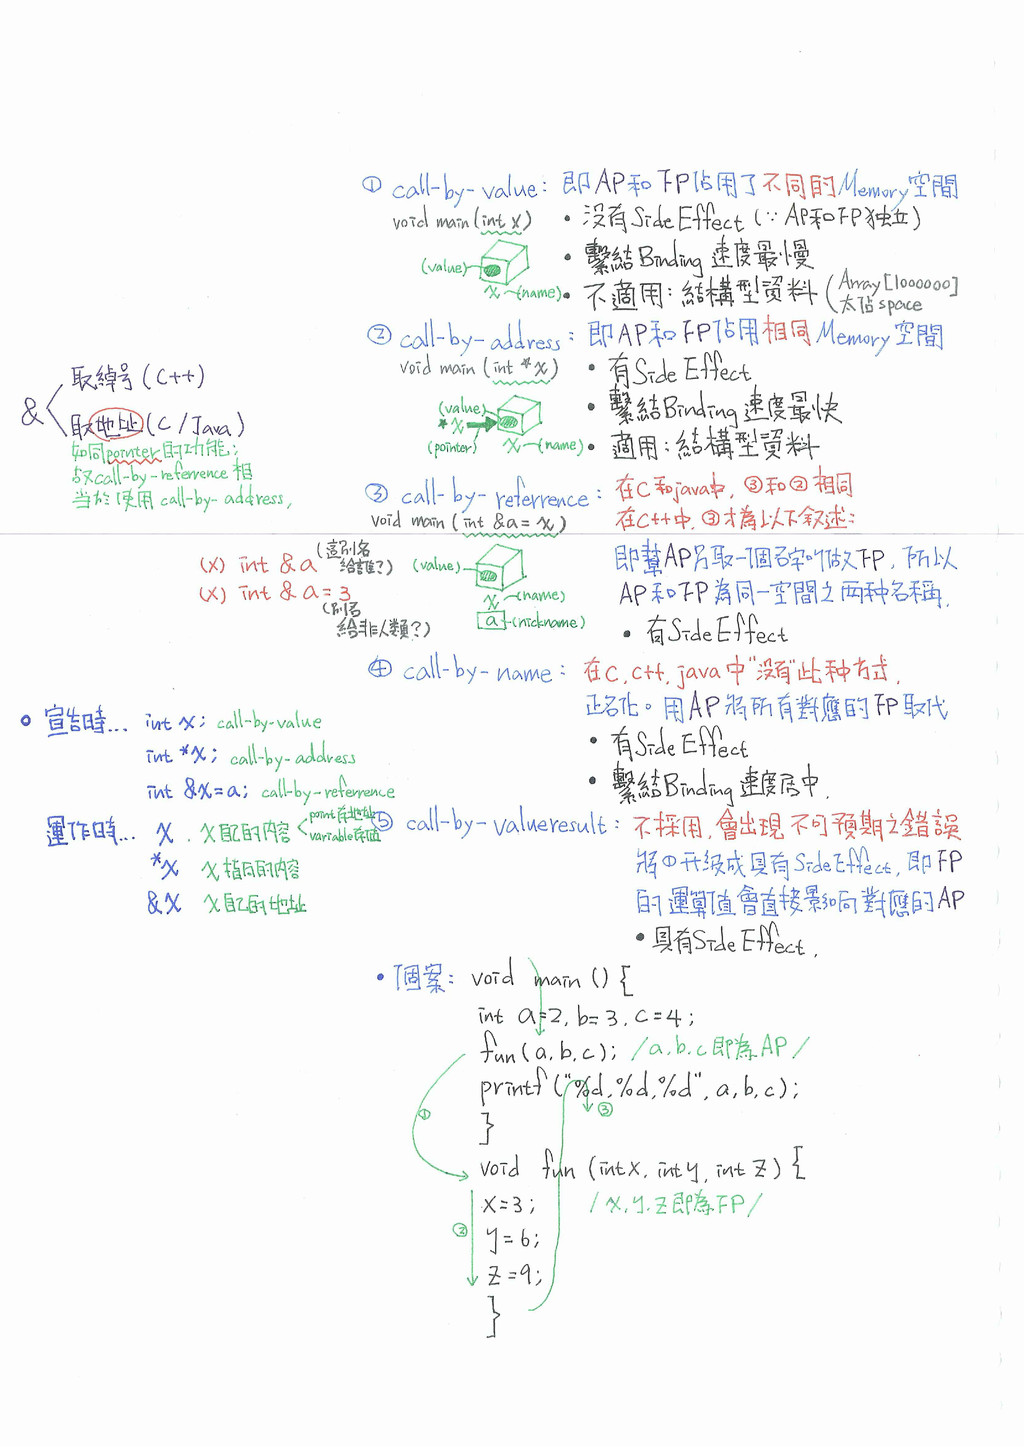 ① call-by-value: 即AP和FP佔用了不同的Memory空間
void main(int x)
• 沒有Side Effect (∵ AP和FP独立)
• 繫結Binding 速度最慢
• 不適用: 結構型資料 (Array[1000000]
太佔space
(value)
x (name)
② call-by-address: 即AP和FP佔用相同Memory空間
void main (int *x)
• 有Side Effect
• 繫結Binding 速度最快
• 適用: 結構型資料
(value)
*x
(pointer)
x (name)
& 取綽号(C++)
取地址(C/Java)
如同pointer的功能;
故call-by-referrence相
当於使用call-by-address,
③ call-by-referrence: 在C和java中, ③和②相同
void main (int &a = x)
在C++中, ③才為以下叙述:
即幫AP另取一個名字叫做FP, 所以
AP和FP為同一空間之两种名稱.
• 有Side Effect
(value)
x (name)
a (nickname)
(x) int & a (這別名
給誰?)
(x) int & a = 3
(別名
給非人類?)
④ call-by-name: 在C, C++, java中"沒有"此种方式.
正名化。用AP將所有對應的FP取代
• 有Side Effect
• 繫結Binding 速度居中.
• 宣告時... int x; call-by-value
int *x; call-by-address
int &x=a; call-by-referrence
運作時... x . x自己的內容 < point存地址
variable存值
*x x指向的內容
&x x自己的地址
⑤ call-by-valueresult: 不採用, 會出現不可預期之錯誤
將①升级成具有Side Effect, 即FP
的運算值會直接影响對應的AP
• 具有Side Effect.
• 個案: void main () {
int a=2, b=3, c=4;
fun(a,b,c); /a.b.c即為AP/
printf("%d,%d,%d", a,b,c);
}
void fun (int x, int y, int z) {
x=3; /x.y.z即為FP/
y=6;
z=9;
}
①
②
③